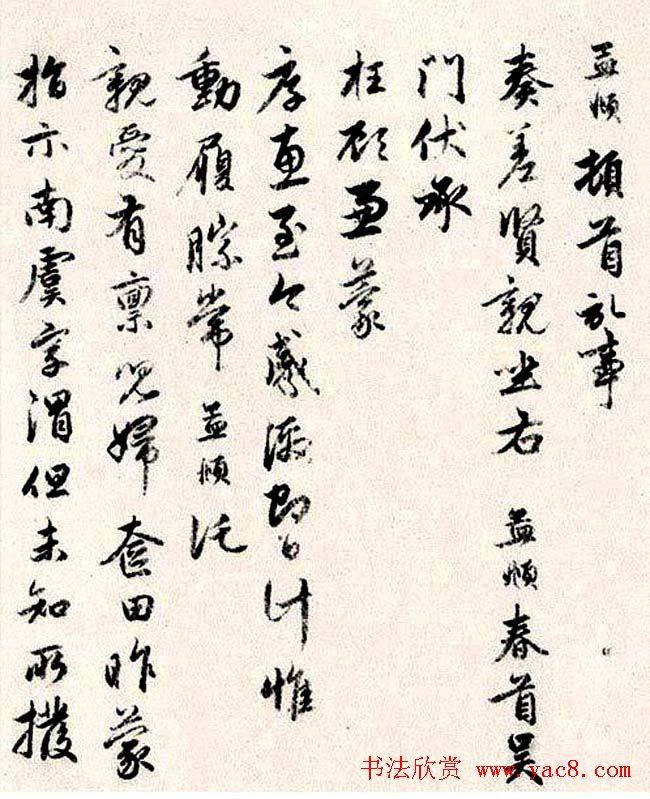 孟頫頓首記事
奏差賢親坐右 孟頫春首吴
門伏承
枉顧兼蒙
厚惠至今感激即日計惟
動履勝常孟頫託
親愛有禀兒婦奩田昨蒙
指示南虞字渭但未知所撥
书法欣赏 www.yac8.com